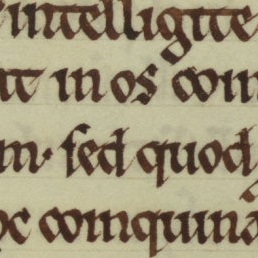 intelligite
at in os coin
m. sed quod
oc coinquina